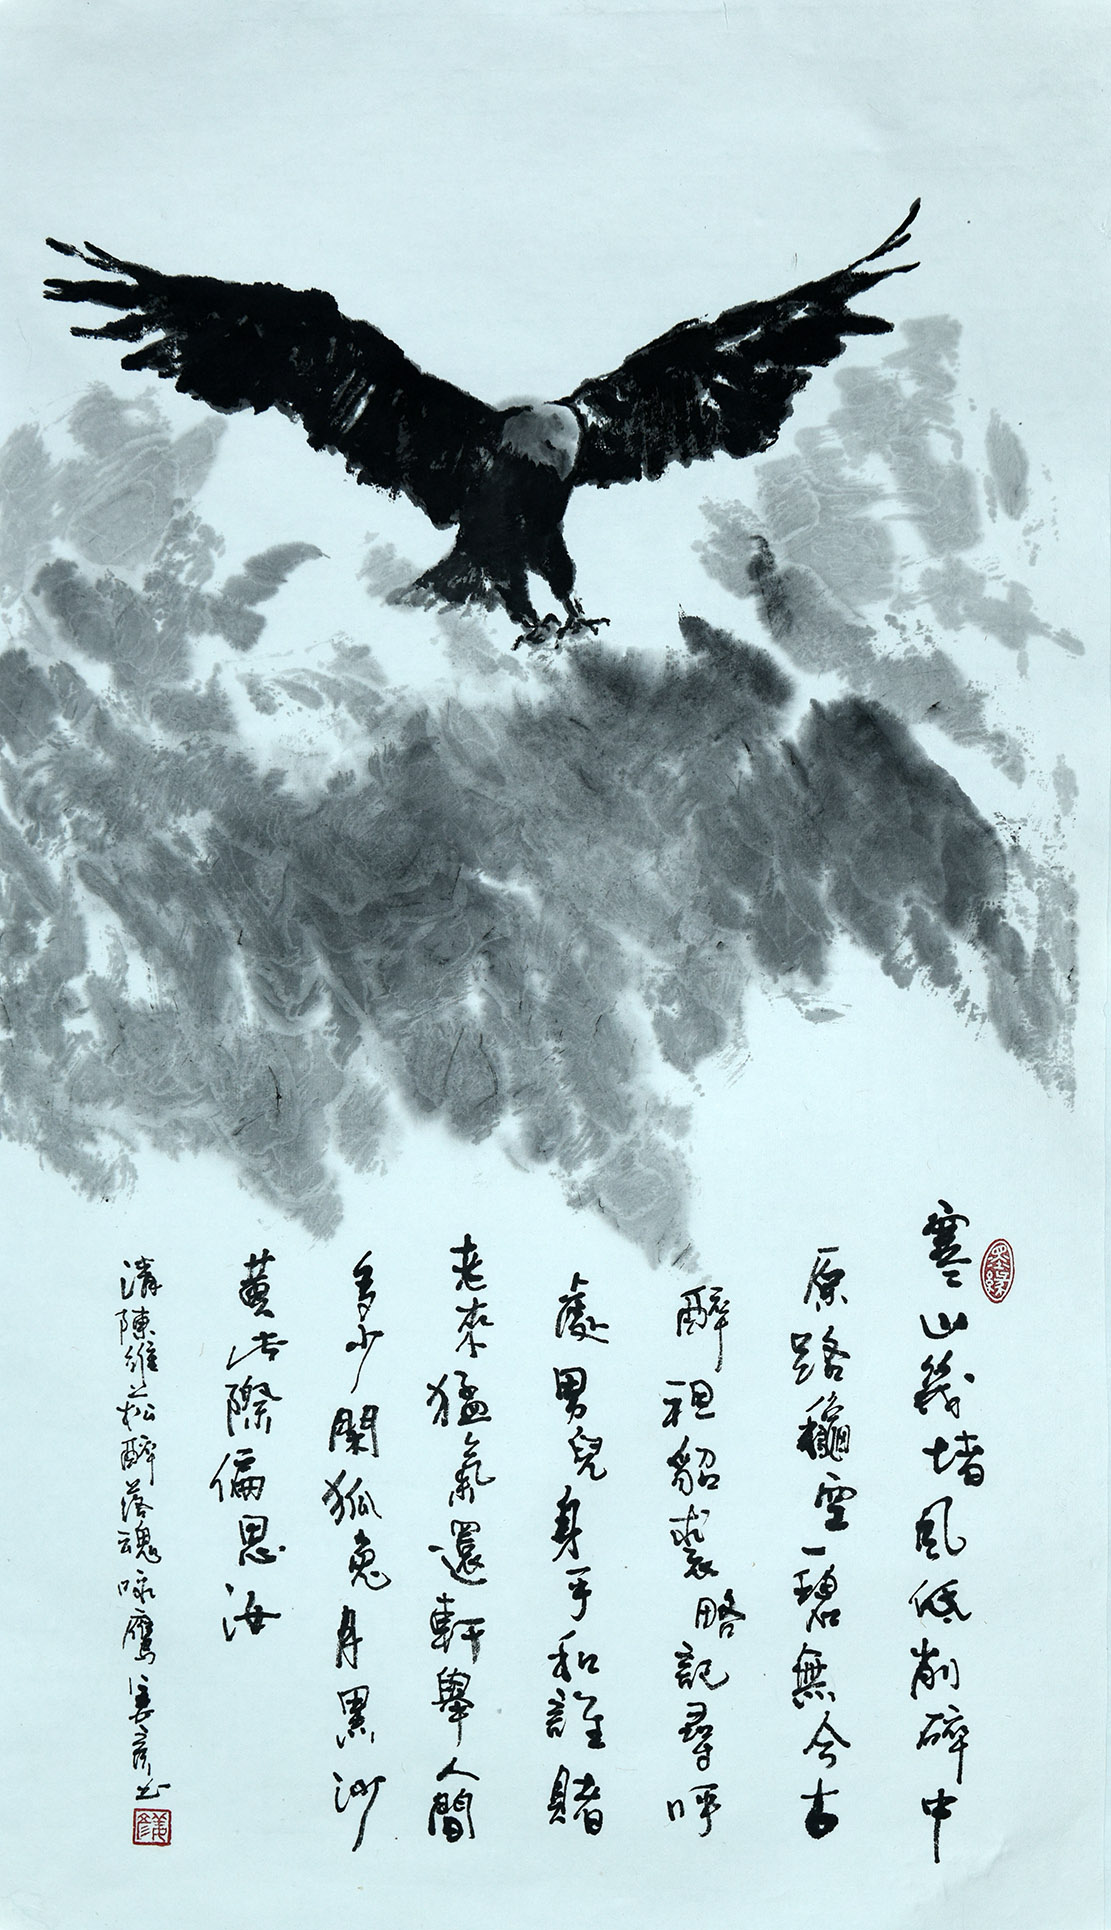 墨緣
寒山幾堵風低削碎中
原路龝空一碧無今古
醉袒貂裘略記尋呼
處男兒身手和誰賭
老來猛氣還軒舉人間
多少閑狐兔月黑沙
黃此際偏思汝
清陳維崧醉落魂咏鷹姜彥书